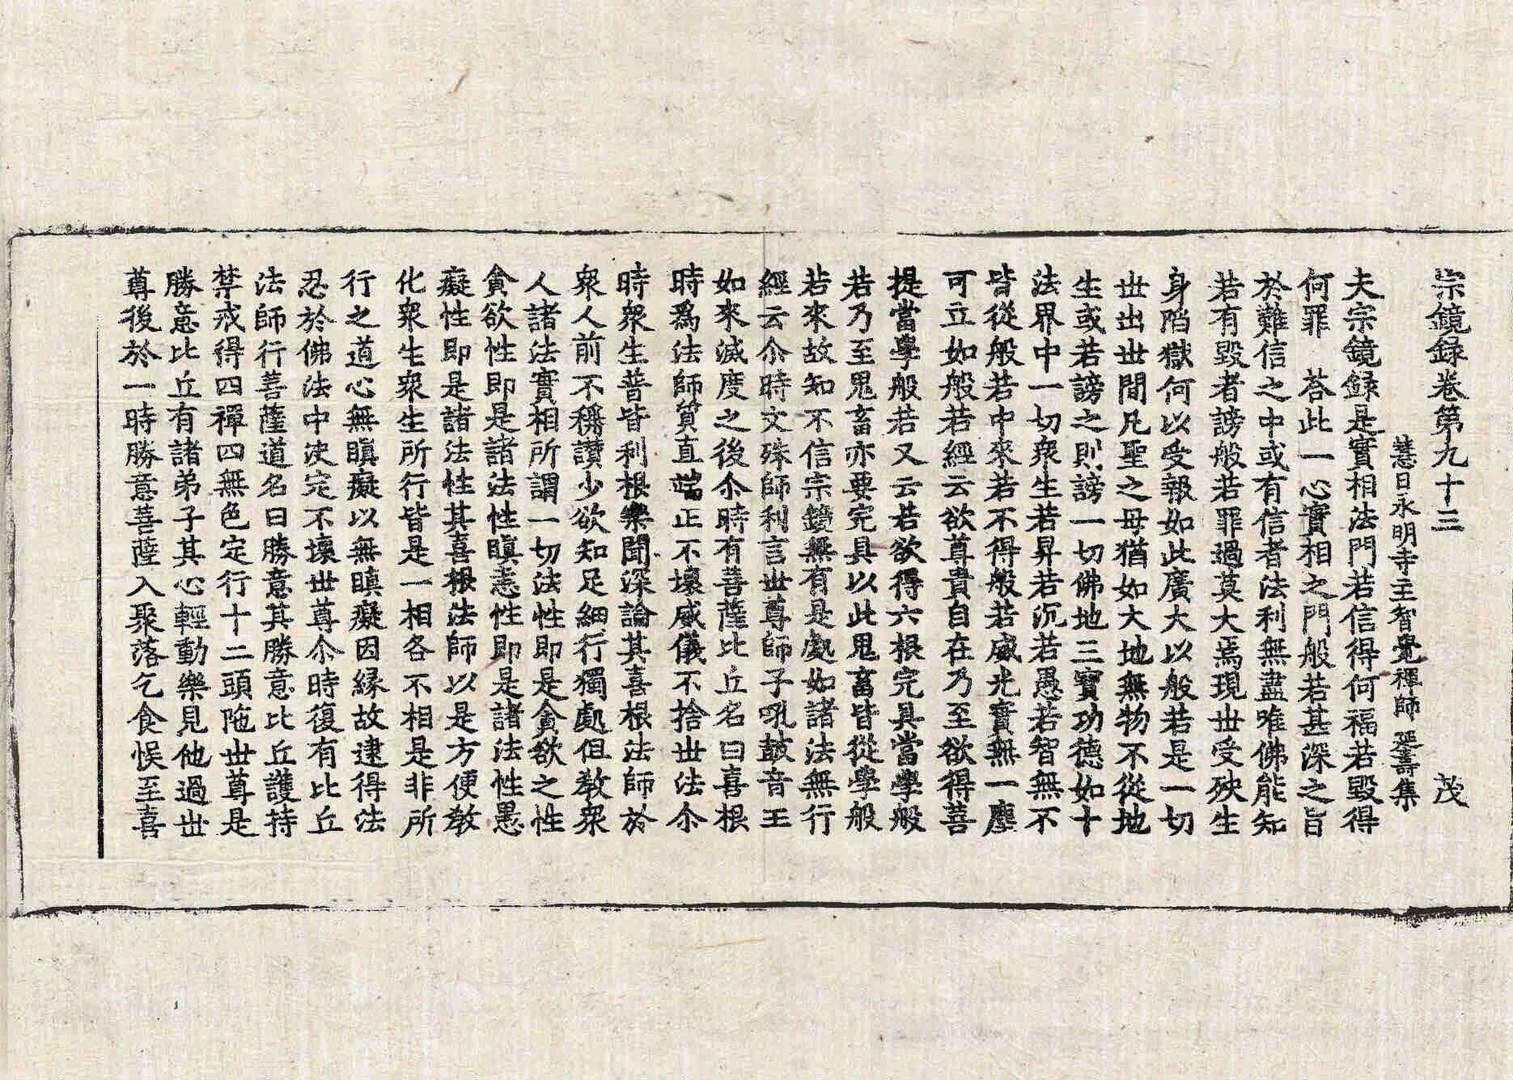 宗鏡録卷第九十三　茂
慧日永明寺主智覺禪師延壽集
夫宗鏡録是實相法門若信得何福若毀得
何罪　荅此一心實相之門般若甚深之旨
於難信之中或有信者法利無盡唯佛能知
若有毀者謗般若罪過莫大焉現世受殃生
身陷獄何以受報如此廣大以般若是一切
世出世間凡聖之母猶如大地無物不從地
生或若謗之則謗一切佛地三寶功德如十
法界中一切衆生若昇若沉若愚若智無不
皆從般若中來若不得般若威光實無一塵
可立如般若經云欲尊貴自在乃至欲得菩
提當學般若又云若欲得六根完具當學般
若乃至鬼畜亦要完具以此鬼畜皆從學般
若來故知不信宗鏡無有是處如諸法無行
經云尒時文殊師利言世尊師子吼鼓音王
如來滅度之後尒時有菩薩比丘名曰喜根
時爲法師質直端正不壞威儀不捨世法尒
時衆生普皆利根樂聞深論其喜根法師於
衆人前不稱讚少欲知足細行獨處但教衆
人諸法實相所謂一切法性即是貪欲之性
貪欲性即是諸法性瞋恚性即是諸法性愚
癡性即是諸法性其喜根法師以是方便教
化衆生衆生所行皆是一相各不相是非所
行之道心無瞋癡以無瞋癡因緣故逮得法
忍於佛法中決定不壞世尊尒時復有比丘
法師行菩薩道名曰勝意其勝意比丘護持
禁戒得四禪四無色定行十二頭陁世尊是
勝意比丘有諸弟子其心輕動樂見他過世
尊後於一時勝意菩薩入聚落乞食悞至喜